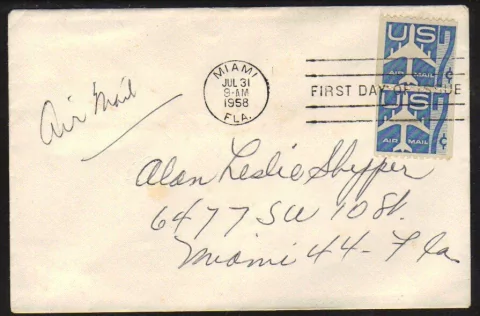 US
AIR MAIL
¢
US
AIR MAIL
¢
MIAMI
JUL 31
9-AM
1958
FLA.
FIRST DAY OF ISSUE
Air Mail
Alan Leslie Shyper
6477 SW 10 St.
Miami 44- Fla